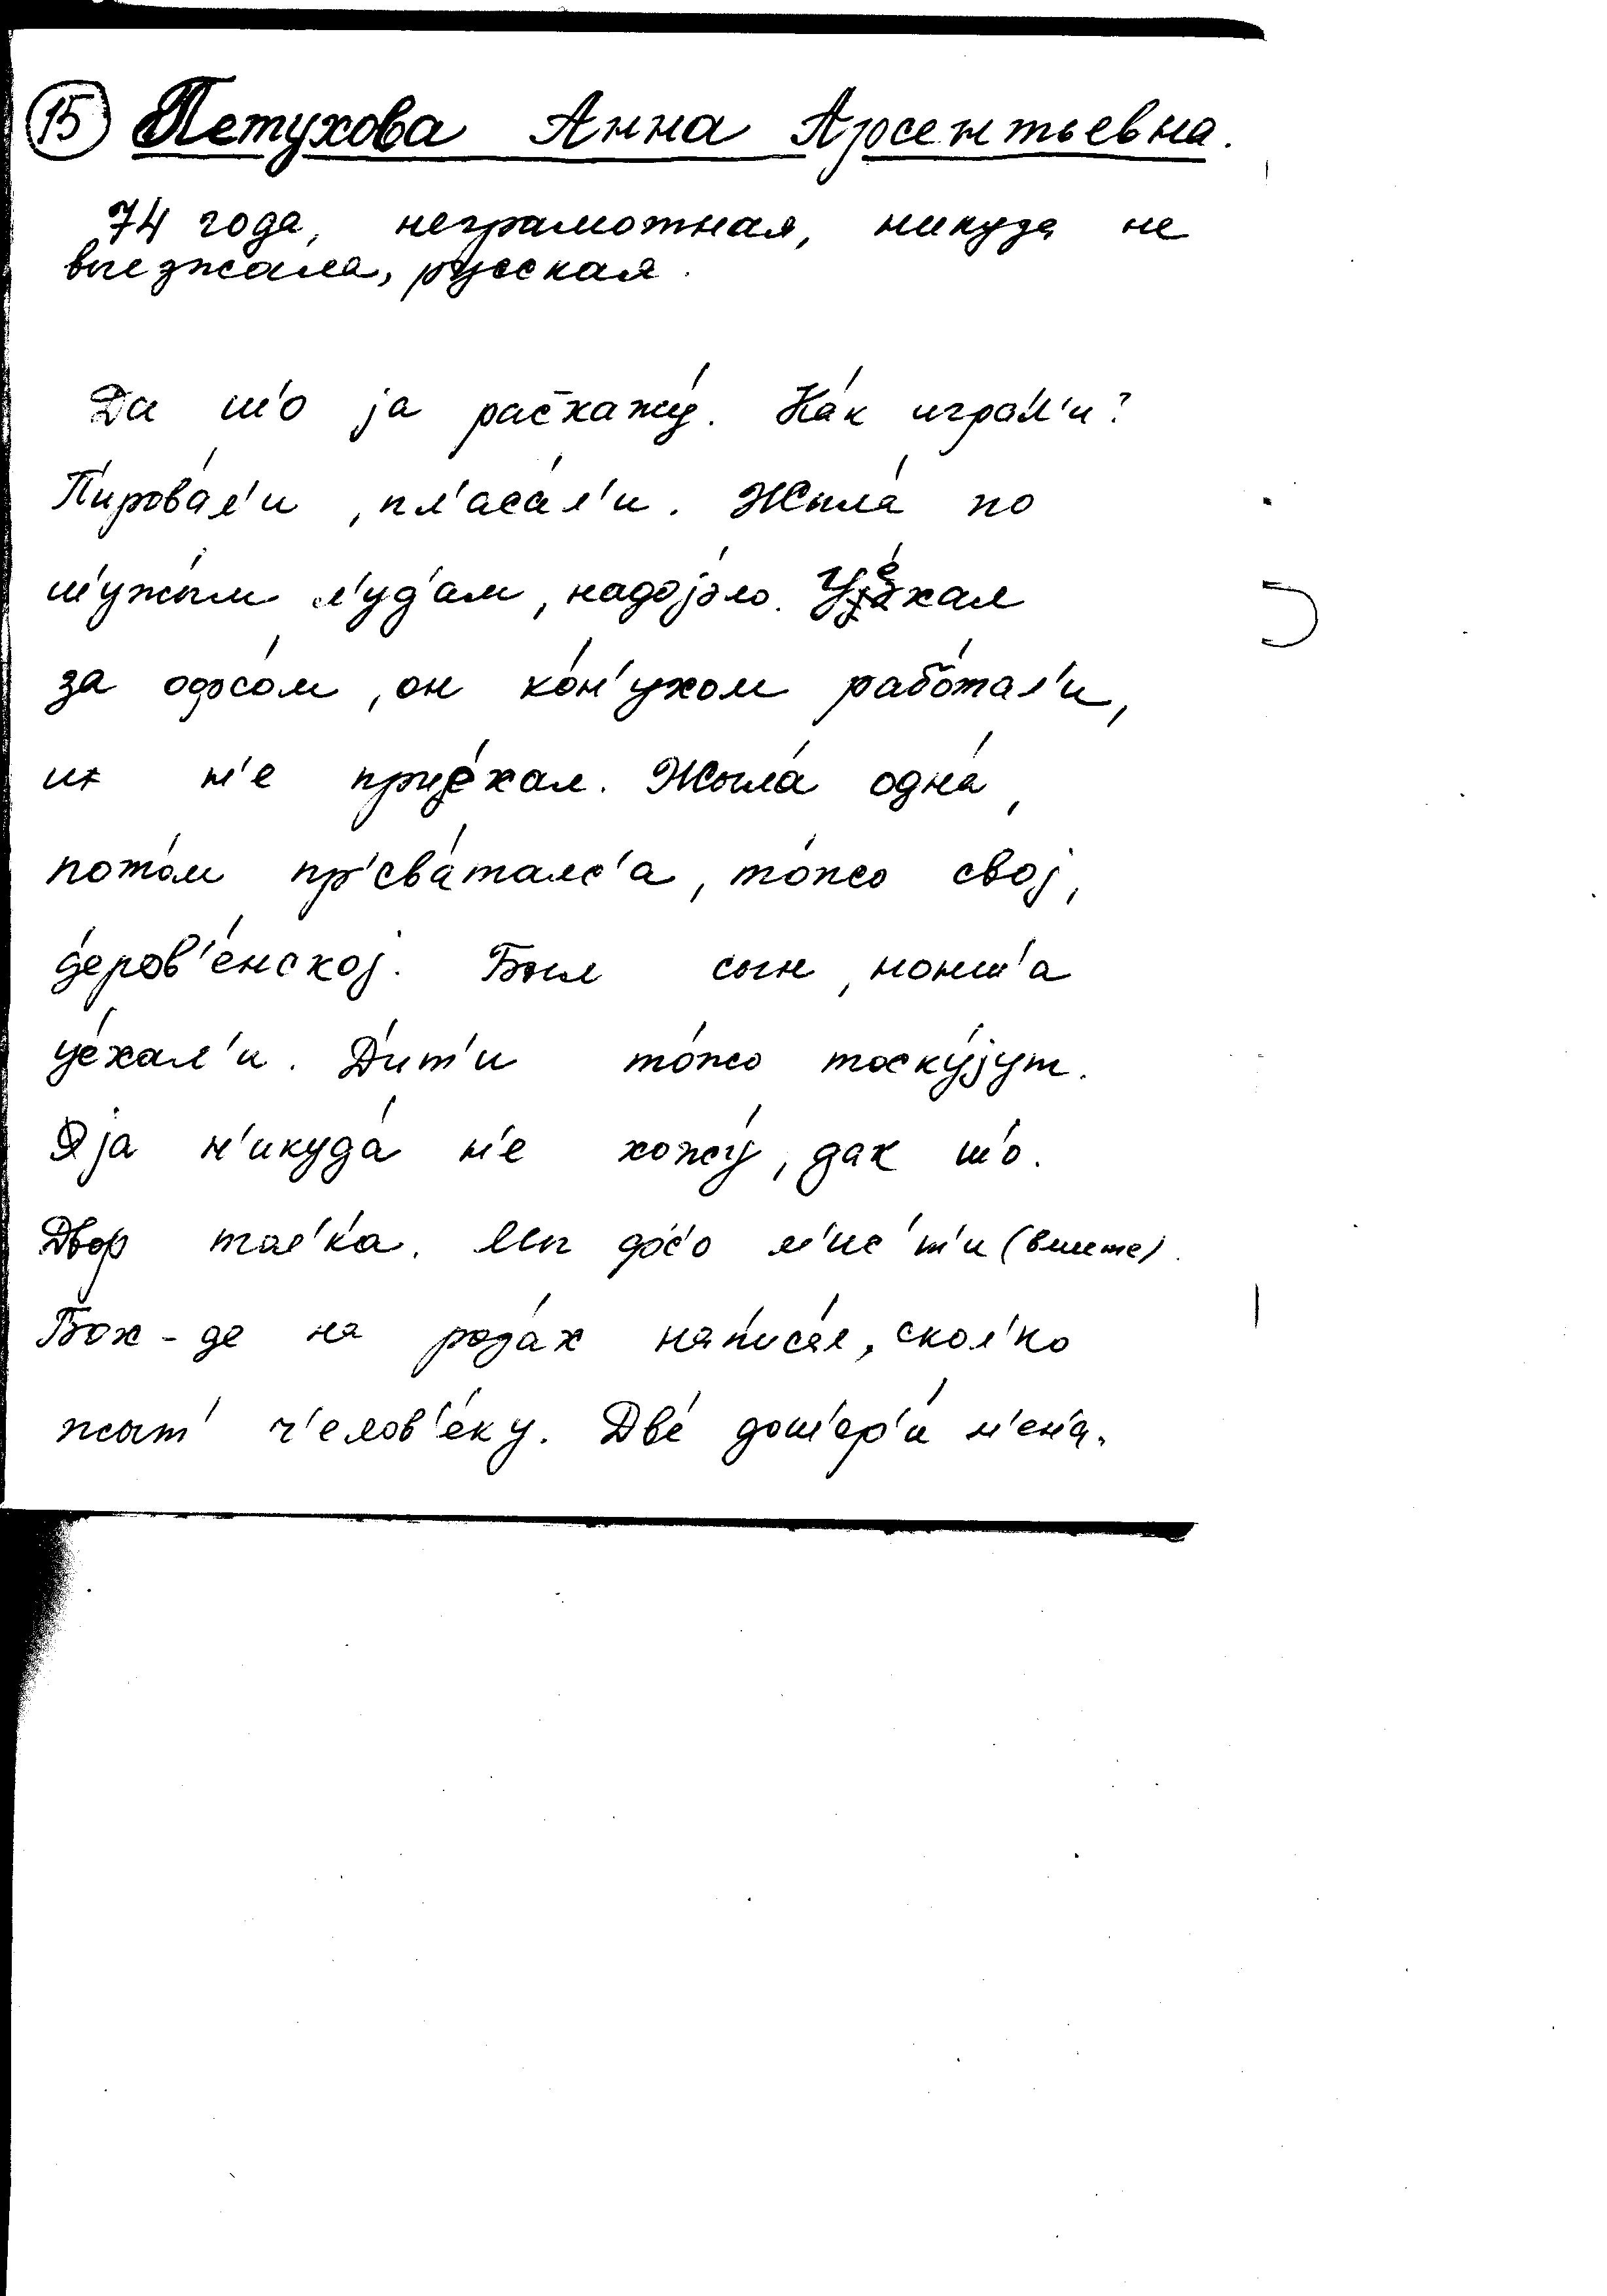 15 Петухова Анна Арсентьевна.
74 года, неграмотная, никуда не
выезжала, русская.
Да ш'о jа расскажу́. Ка́к игра́л'и?
П'ирова́л'и, пл'аса́л'и. Жыла́ по
ш'ужы́м л'уд'ам, надоjэ́ло. Уjе́хал
за офсо́м, он ко́н'ухом рабо́тал'и,
их н'е приjе́хал. Жыла́ одна́,
пото́м пр'сва́талс'а, то́жо свој,
д'ер'ов'е́нскоj. Был сын, нонш'а
уе́хал'и. Д'и́т'и то́жо тоску́jут.
Я jа н'икуда́ н'е хожу́, дак ш'о.
Двор то́л'ка. Мы фс'о м'и́с'т'и (вместе).
Бох-де на рода́х нап'иса́л, скол'ко
жыт' ч'елов'е́ку. Две́ дош'ер'и́ м'ен'а́.